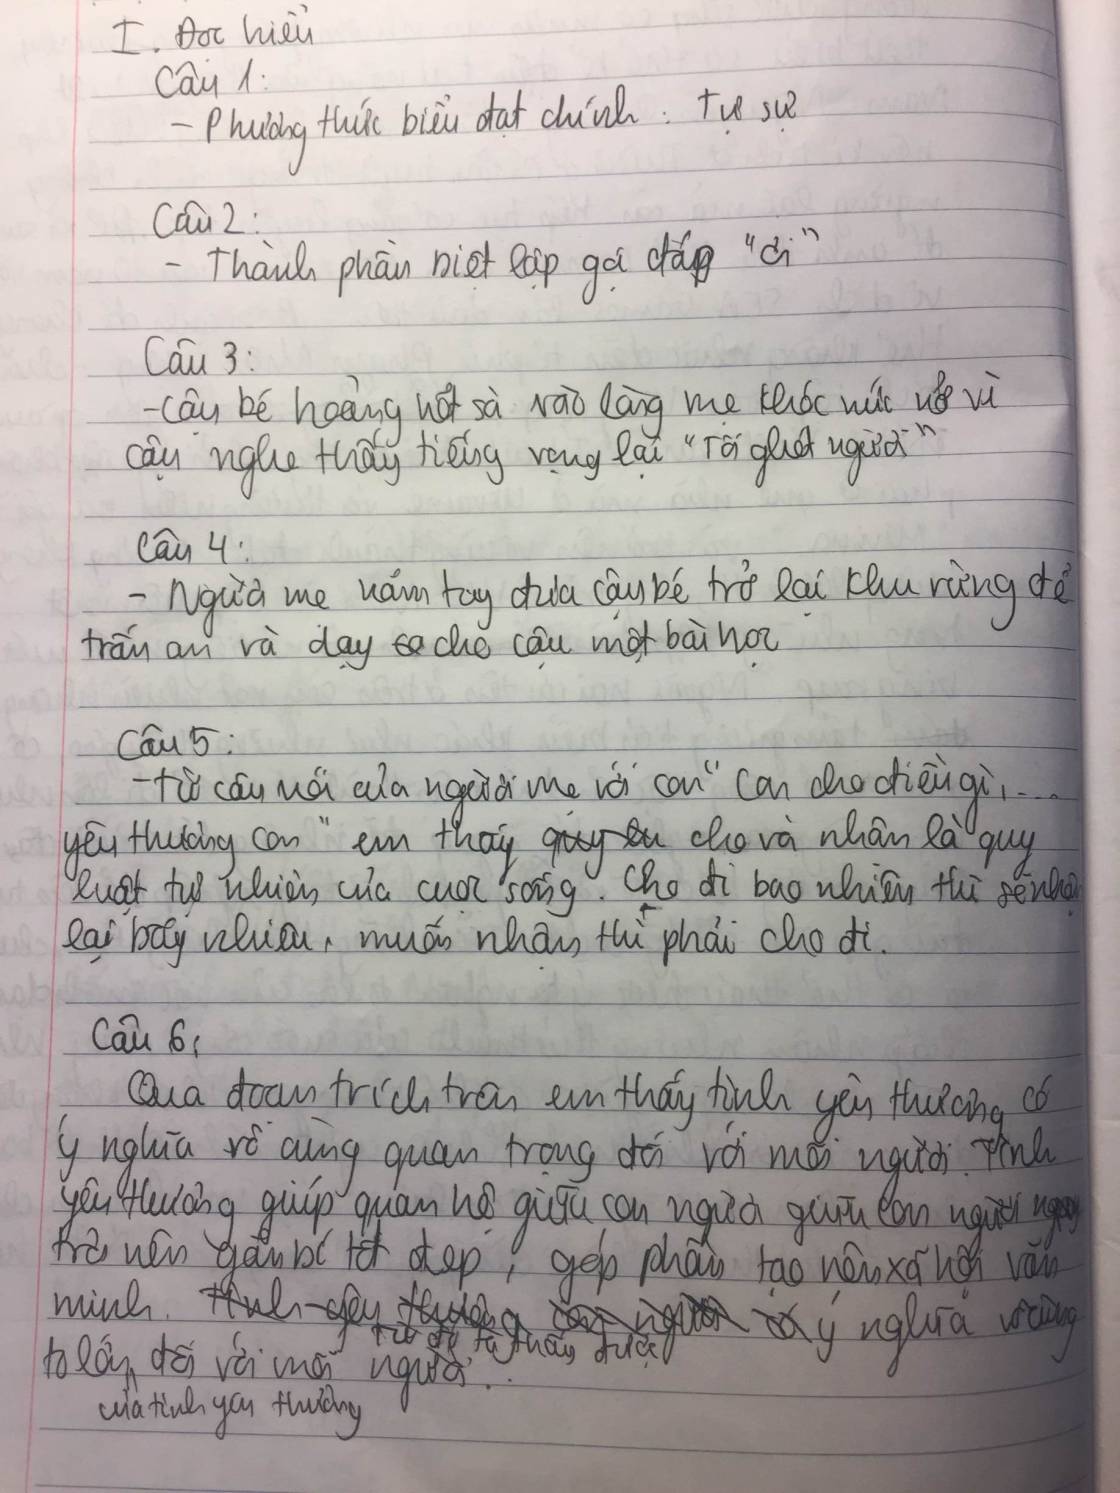 I. Đọc hiểu
Câu 1:
- Phương thức biểu đạt chính : Tự sự
Câu 2:
- Thành phần biệt lập gọi đáp "ơi"
Câu 3:
- Cậu bé hoảng hốt sà vào lòng mẹ khóc nức nở vì
cậu nghe thấy tiếng vọng lại "Tôi ghét người"
Câu 4:
- Người mẹ nắm tay đưa cậu bé trở lại khu rừng để
trấn an và dạy cho cậu một bài học
Câu 5:
- Từ câu nói của người mẹ với con "Con cho điều gì, ...
yêu thương con" em thấy cho và nhận là quy
luật tự nhiên của cuộc sống. Cho đi bao nhiêu thì sẽ nhận
lại bấy nhiêu, muốn nhận thì phải cho đi.
Câu 6:
Qua đoạn trích trên em thấy tình yêu thương có
ý nghĩa vô cùng quan trọng đối với mỗi người. Tình
yêu thương giúp quan hệ giữa con người giữa con người
trở nên gắn bó tốt đẹp, góp phần tạo nên xã hội văn
minh. Tình yêu thương con người có ý nghĩa vô cùng
từ đó ta thấy được
to lớn đối với mỗi người.
của tình yêu thương